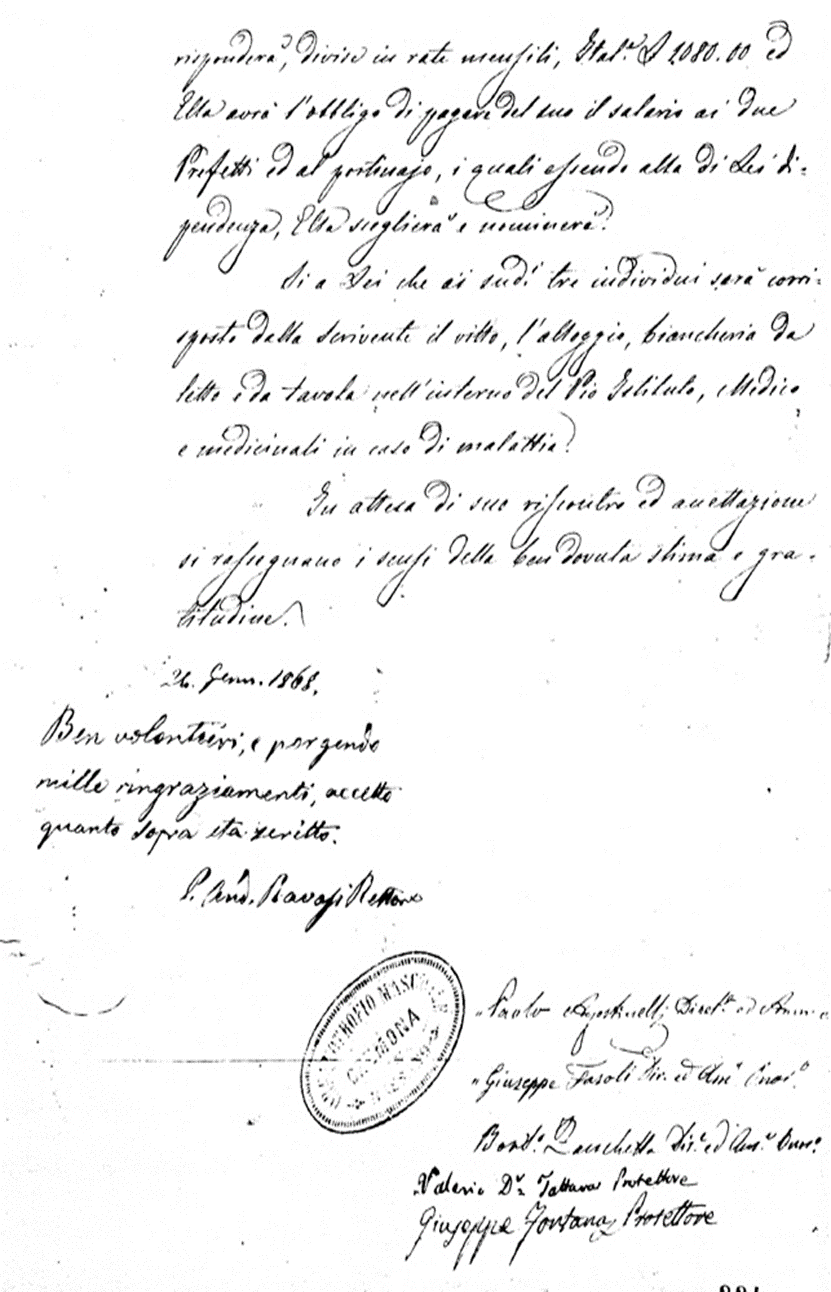 risponderà, divise in rate mensili, Ital.e £ 1080.00 ed
Ella avrà l'obbligo di pagare del suo il salario ai due
Prefetti ed al portinajo, i quali essendo alla di Lei di=
pendenza, Ella sceglierà e nominerà.
Si a Lei che ai sud.i tre individui sarà corri=
sposto dalla scrivente il vitto, l'alloggio, biancheria da
letto e da tavola nell'interno del Pio Istituto, Medico
e medicinali in caso di malattia.
In attesa di suo riscontro ed accettazione
si rassegnano i sensi della ben dovuta stima e gra=
titudine.
26. Genn. 1868.
Ben volontieri, e porgendo
mille ringraziamenti, accetto
quanto sopra sta scritto.
P. And. Ravasi Rettore
ORFANOTROFIO MASCHILE
CREMONA
Paolo Agostinelli Dirett.e ed Amm.
Giuseppe Fasoli Dir. ed Am.e Onor.o
Bort.o Zanchetta Dir.e ed Am.e Onor.o
Valerio D.r Tattara Protettore
Giuseppe Fontana Protettore